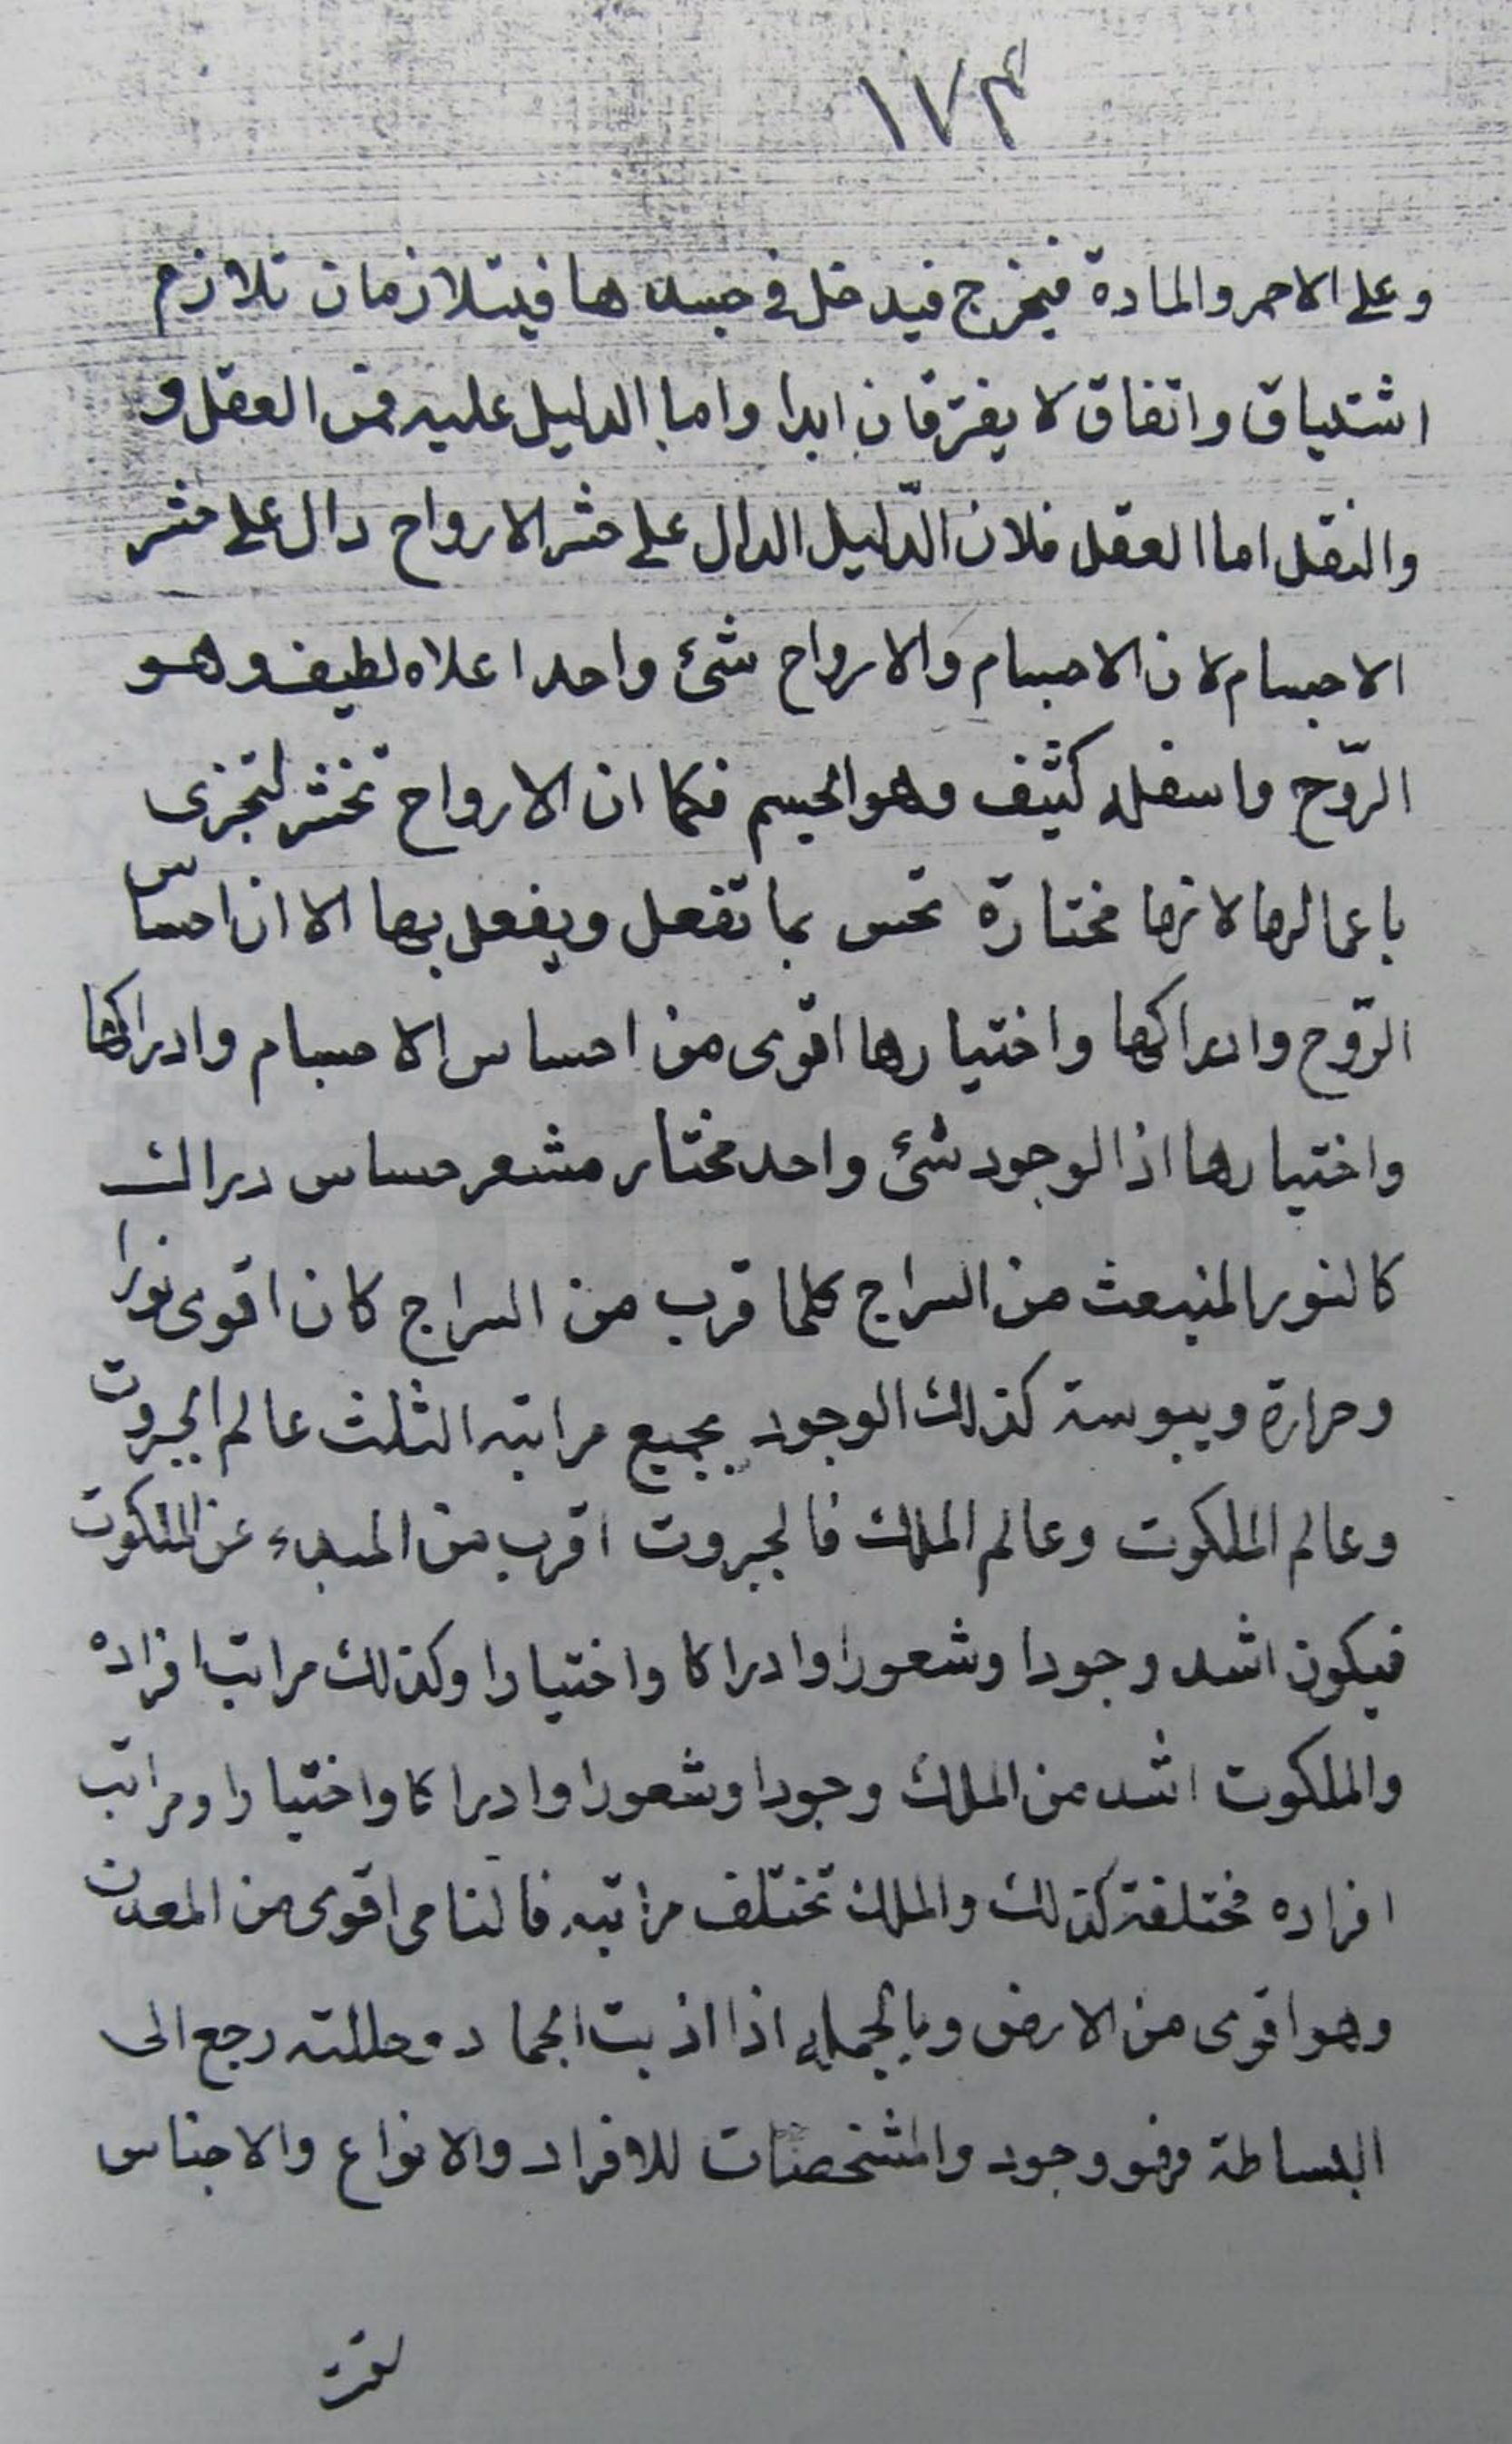 ١٧٤
وعلى الاحمر والمادة فيخرج فيدخل في جسدها فيتلازمان تلازم
اشتياق واتفاق لا يفترقان ابدا واما الدليل عليه فمن العقل و
والنقل اما العقل فلان الدّليل الدال على حشر الارواح دال على حشر
الاجسام لان الاجسام والارواح شئ واحد اعلاه لطيف وهو
الرّوح واسفله كثيف وهو الجسم فكما ان الارواح تحشر لتجزى
باعمالها لانها مختارة تحس بما تفعل ويفعل بها الا ان احساس
الرّوح وادراكها واختيارها اقوى من احساس الاجسام وادراكها
واختيارها اذ الوجود شئ واحد مختار مشعر حساس دراك
كالنور المنبعث من السراج كلما قرب من السراج كان اقوى نورا
وحرارة ويبوسة كذلك الوجود بجميع مراتبه الثلث عالم الجبروت
وعالم الملكوت وعالم الملك فالجبروت اقرب من المبدء عن الملكوت
فيكون اشد وجودا وشعورا وادراكا واختيارا وكذلك مراتب افراده
والملكوت اشد من الملك وجودا وشعورا وادراكا واختيارا ومراتب
افراده مختلفة كذلك والملك تختلف مراتبه فالنامى اقوى من المعدن
وهو اقوى من الارض وبالجمله اذا اذبت الجماد وحللته رجع الى
البساطة فهو وجود والمشخصات للافراد والانواع والاجناس